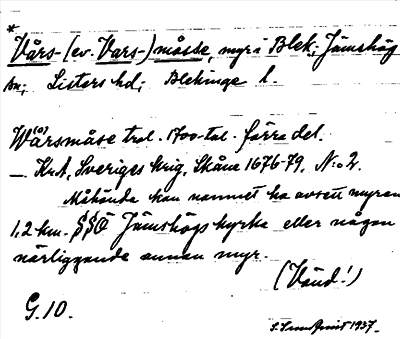 *
Vårs- (ev. Vars-) måsse, myr i Blek.; Jämshög
sn; Listers hd; Blekinge l.
Wårsmåse trol. 1700-tal. förra del.
— KrA, Sveriges krig, Skåne 1676-79, N:o 2.
Måhända kan namnet ha avsett myren
1,2 km. SSÖ Jämshögs kyrka eller någon
närliggande annan myr.
(Vänd!)
G. 10.
1937.